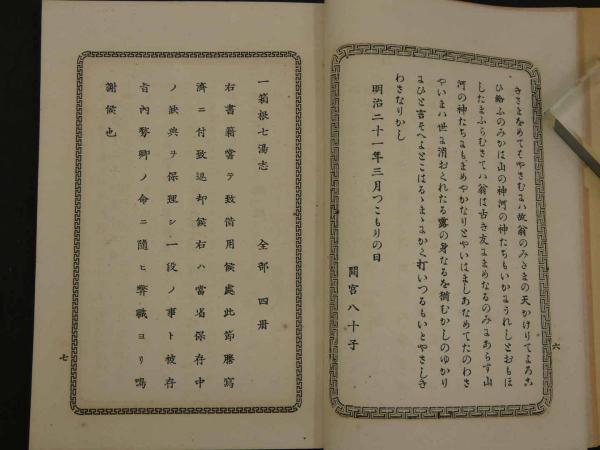 きさまなめてそやさむまハ故翁のみさまの天かけりてよろこ
ひ給ふのみかは山の神河の神たちもいかまうれしとおもほ
したまふらむさてハ翁は古き友ままめなるのみまあらす山
河の神たちまもまめやかなりとやいはましあなめてたのわさ
やいまハ世ま消おくれたる露の身なるを猶むかしのゆかり
まひと言そへよとこはるゝまゝまかく打いつるもいとやさしき
わさなりかし
明治二十一年三月つこもりの日
間宮八十子
六
一箱根七湯志　全部　四冊
右書籍嘗テ致借用候處此節謄寫
濟ニ付致返却候右ハ當省保存中
ノ缺典ヲ保理シ一段ノ事ト被存
旨內務卿ノ命ニ隨ヒ弊職ヨリ鳴
謝候也
七